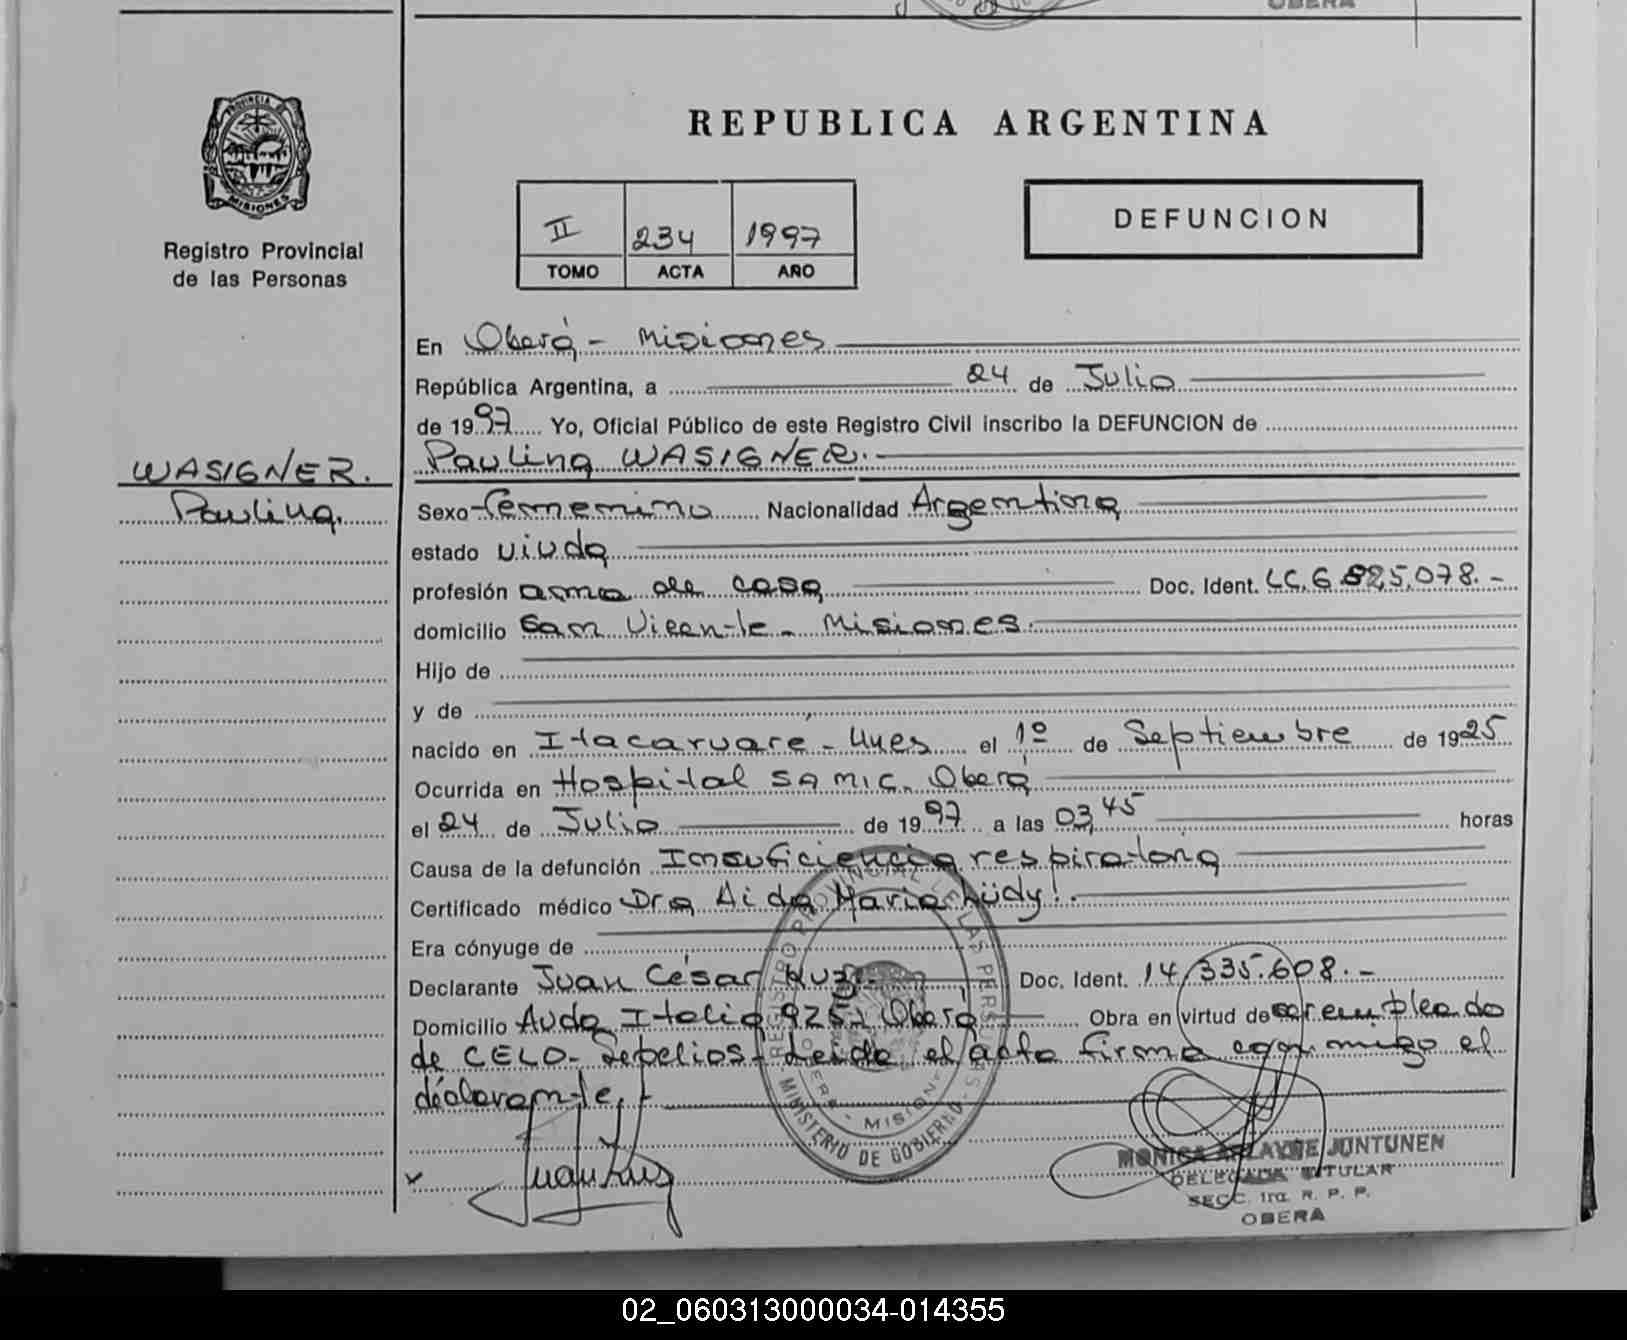 OBERA
PROVINCIA DE
MISIONES
Registro Provincial
de las Personas
REPUBLICA ARGENTINA
II 234 1997
TOMO ACTA AÑO
DEFUNCION
En Oberá - Misiones
República Argentina, a 24 de Julio
de 1997 Yo, Oficial Público de este Registro Civil inscribo la DEFUNCION de
Paulina WASIGNER.-
WASIGNER.
Paulina.
Sexo femenino Nacionalidad Argentina
estado viuda
profesión ama de casa Doc. Ident. LC.6.825.078.-
domicilio San Vicente - Misiones.
Hijo de
y de
nacido en Itacaruare - Mnes el 1º de Septiembre de 1925
Ocurrida en Hospital SAMIC. Oberá
el 24 de Julio de 1997 a las 03,45 horas
Causa de la defunción Insuficiencia respiratoria
Certificado médico Dra Aida Maria Lüdy.-
Era cónyuge de
Declarante Juan César Doc. Ident. 14.335.608.-
Domicilio Avda Italia 925 Oberá Obra en virtud de ser empleado
de CELO - Sepelios - Leida el acta firma conmigo el
declarante.-
REGISTRO PROVINCIAL DE LAS PERSONAS
OBERA - MISIONES
MINISTERIO DE GOBIERNO
MONICA JUNTUNEN
DELEGADA TITULAR
SECC. 1ra. R. P. P.
OBERA
02_060313000034-014355